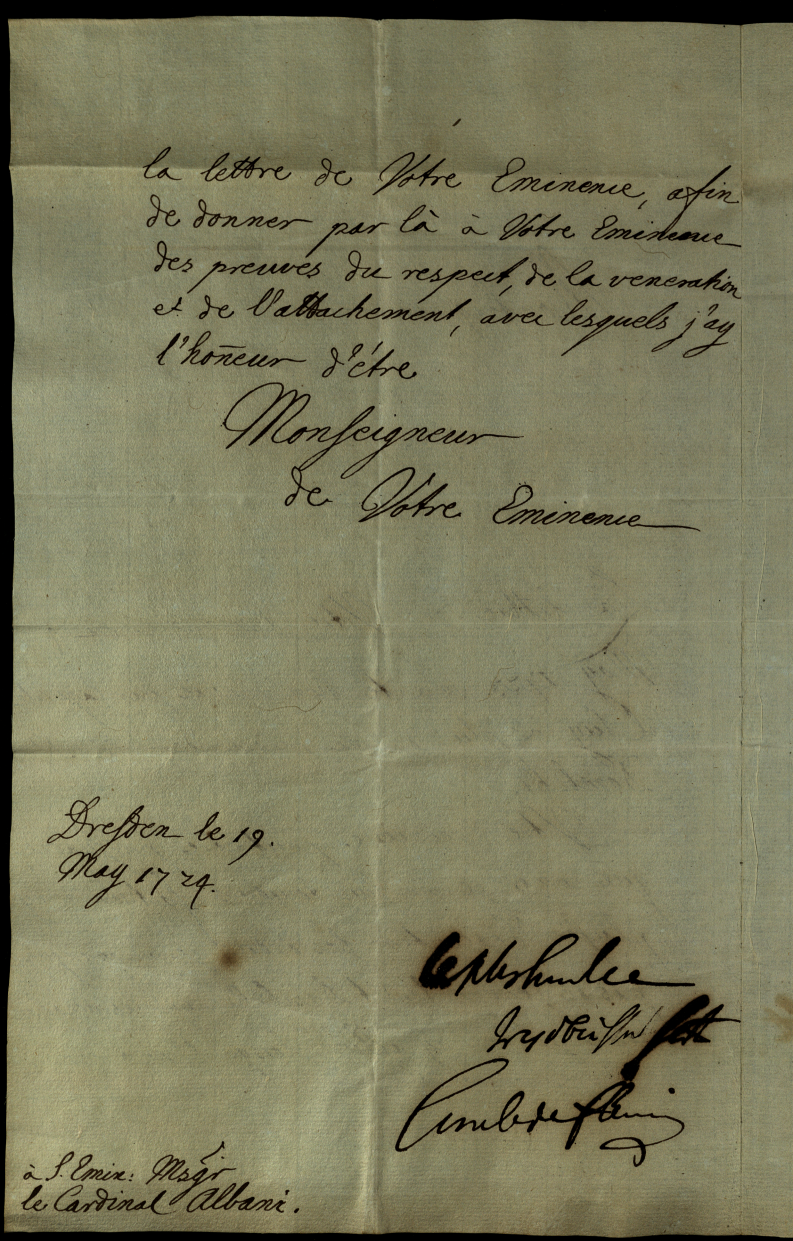 la lettre de Votre Eminence, afin
de donner par là à Votre Eminence
des preuves du respect, de la veneration
et de l'attachement, avec lesquels j'ay
l'hon̄eur d'étre
Monseigneur
de Votre Eminence
Dresden le 19.
May 1724.
Le plus humble
Comte de Flemming
à S. Emin: Msgr
le Cardinal Albani.